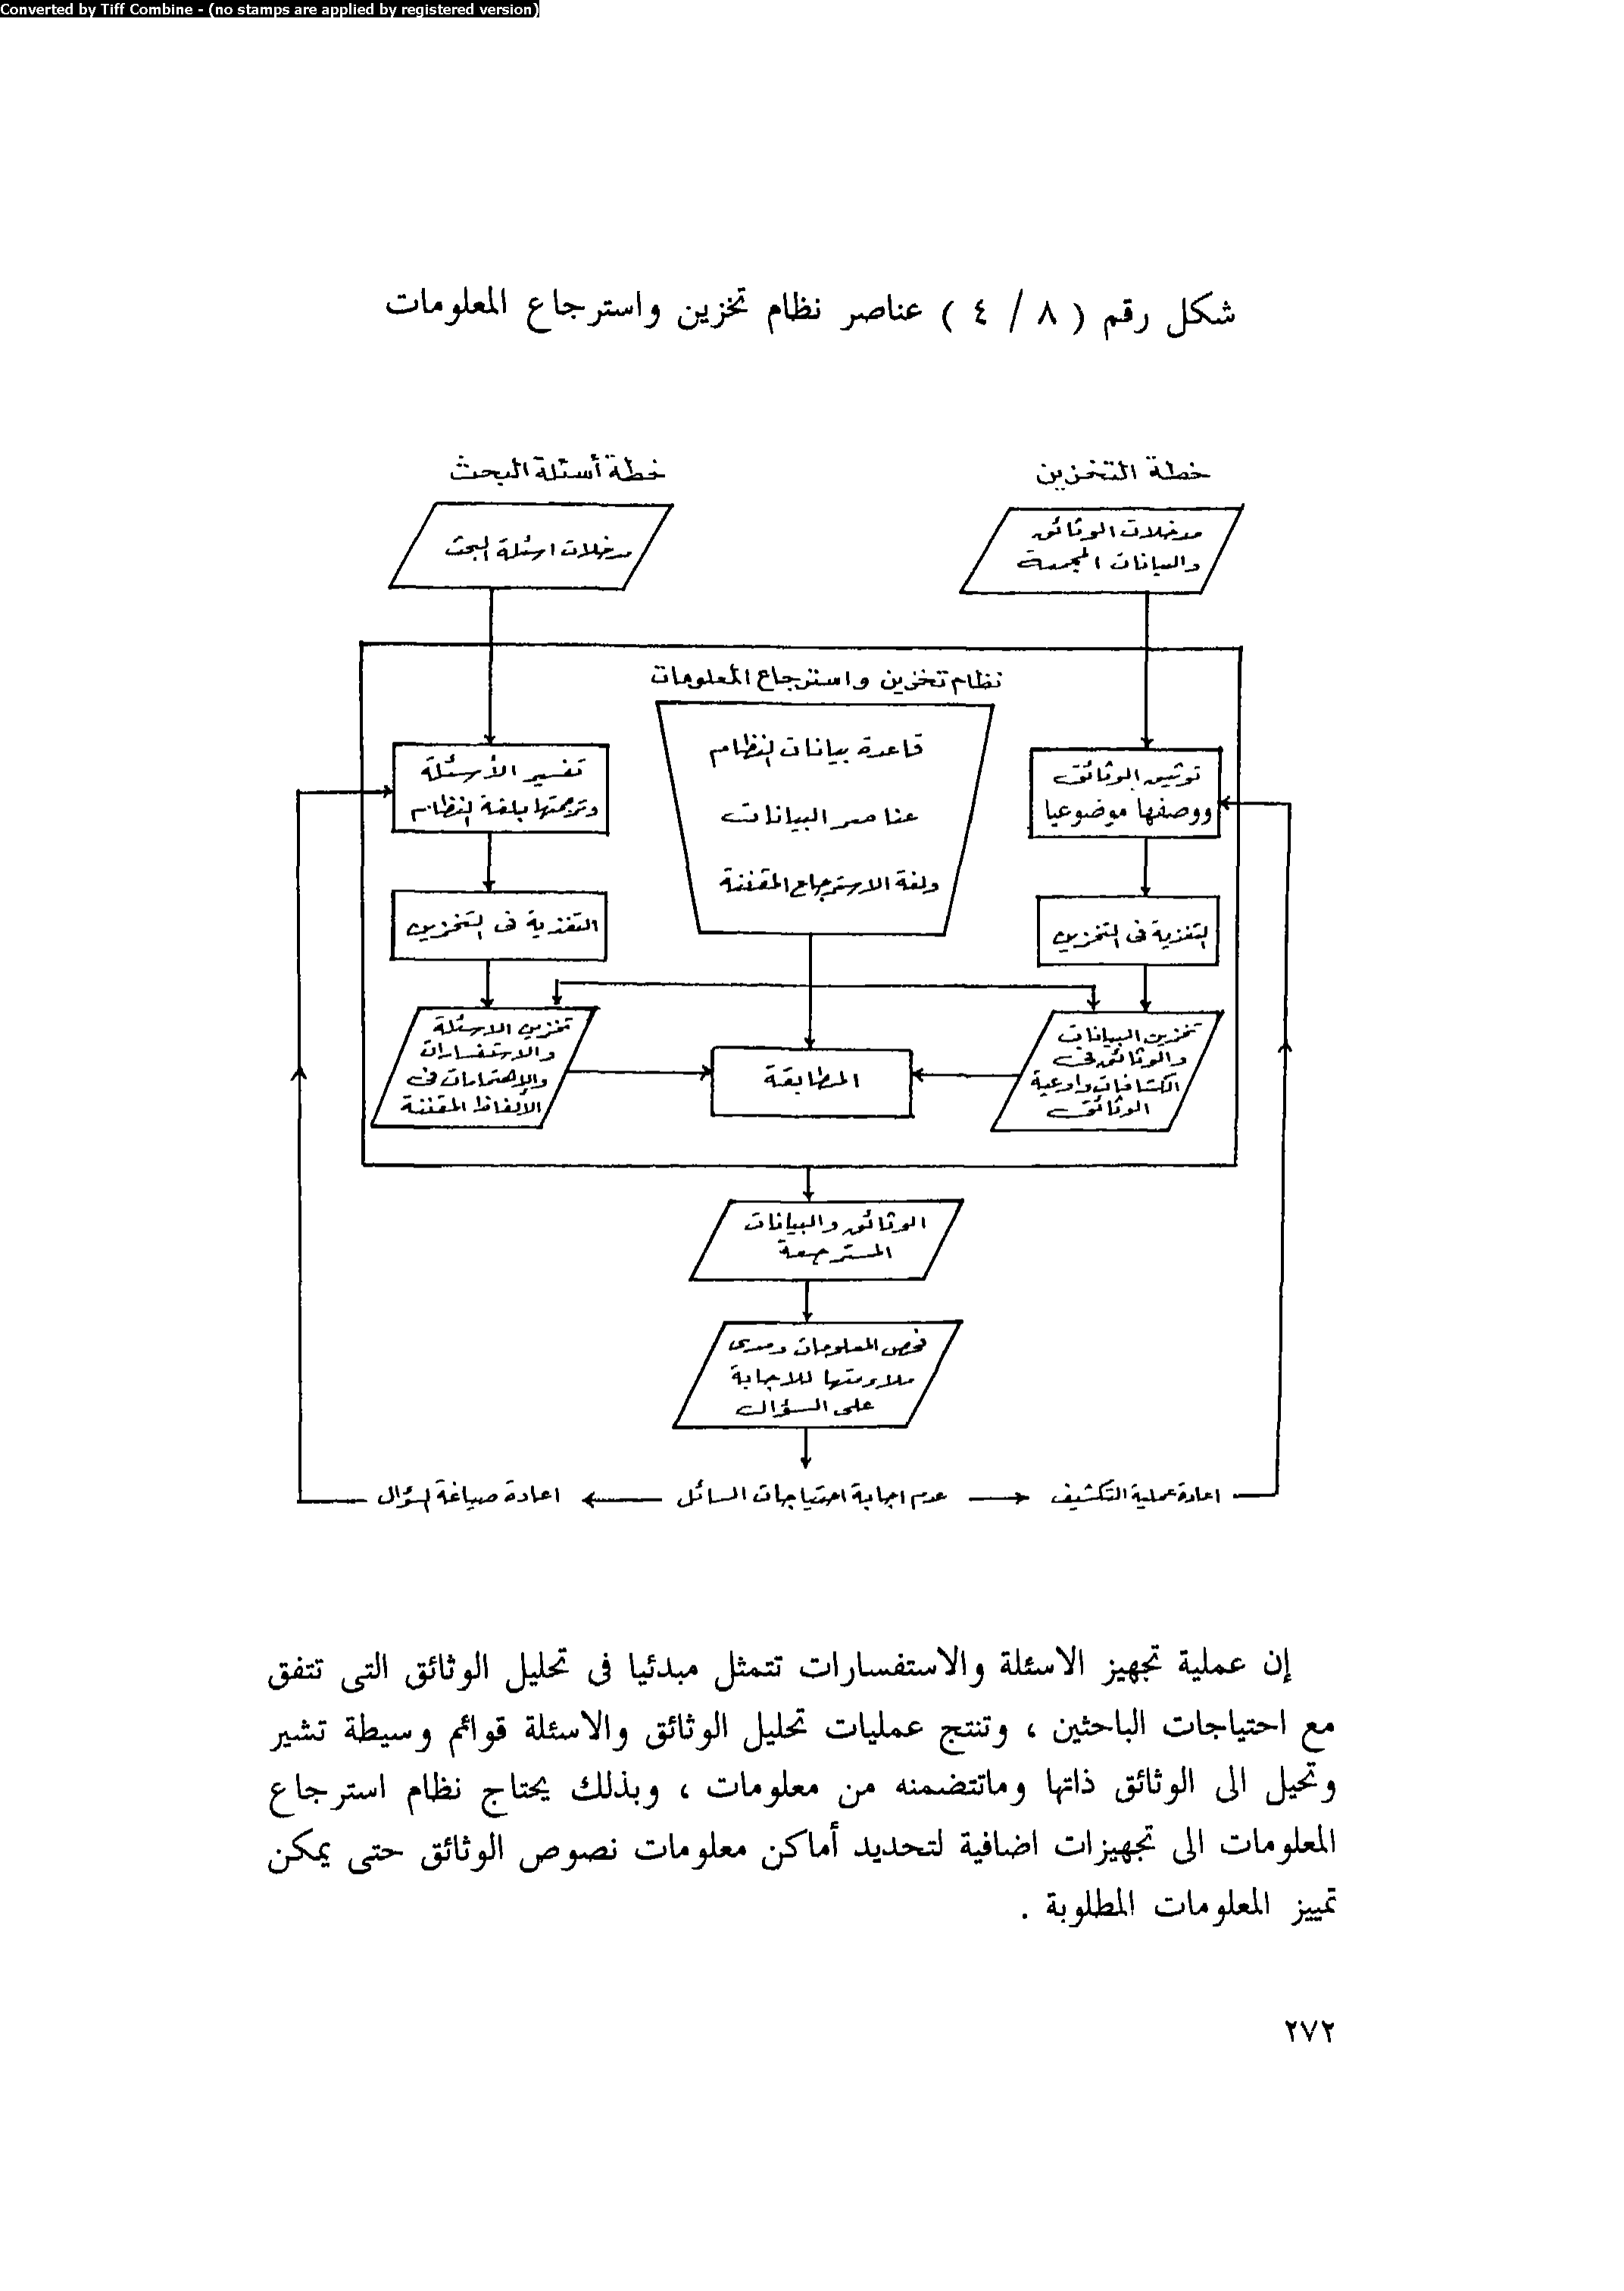 Converted by Tiff Combine - (no stamps are applied by registered version)
شكل رقم ( ٨ / ٤ ) عناصر نظام تخزين واسترجاع المعلومات
خطة التخزين
خطة أسئلة البحث
مدخلات الوثائق
والبيانات المجمعة
مدخلات اسئلة البحث
نظام تخزين واسترجاع المعلومات
قاعدة بيانات النظام
عناصر البيانات
ولغة الاسترجاع المقننة
توثيق الوثائق
ووصفها موضوعيا
تفسير الأسئلة
وترجمتها بلغة النظام
التغذية فى التخزين
التغذية فى التخزين
تخزين البيانات
والوثائق فى
الكشافات وأوعية
الوثائق
المطابقة
تخزين الاسئلة
والاستفسارات
والاهتمامات فى
الألفاظ المقننة
الوثائق والبيانات
المسترجعة
فحص المعلومات ومدى
ملاءمتها للاجابة
على السؤال
اعادة عملية التكشيف
عدم اجابة احتياجات السائل
اعادة صياغة السؤال
إن عملية تجهيز الاسئلة والاستفسارات تتمثل مبدئيا فى تحليل الوثائق التى تتفق
مع احتياجات الباحثين ، وتنتج عمليات تحليل الوثائق والاسئلة قوائم وسيطة تشير
وتحيل الى الوثائق ذاتها وماتتضمنه من معلومات ، وبذلك يحتاج نظام استرجاع
المعلومات الى تجهيزات اضافية لتحديد أماكن معلومات نصوص الوثائق حتى يمكن
تمييز المعلومات المطلوبة .
٢٧٢